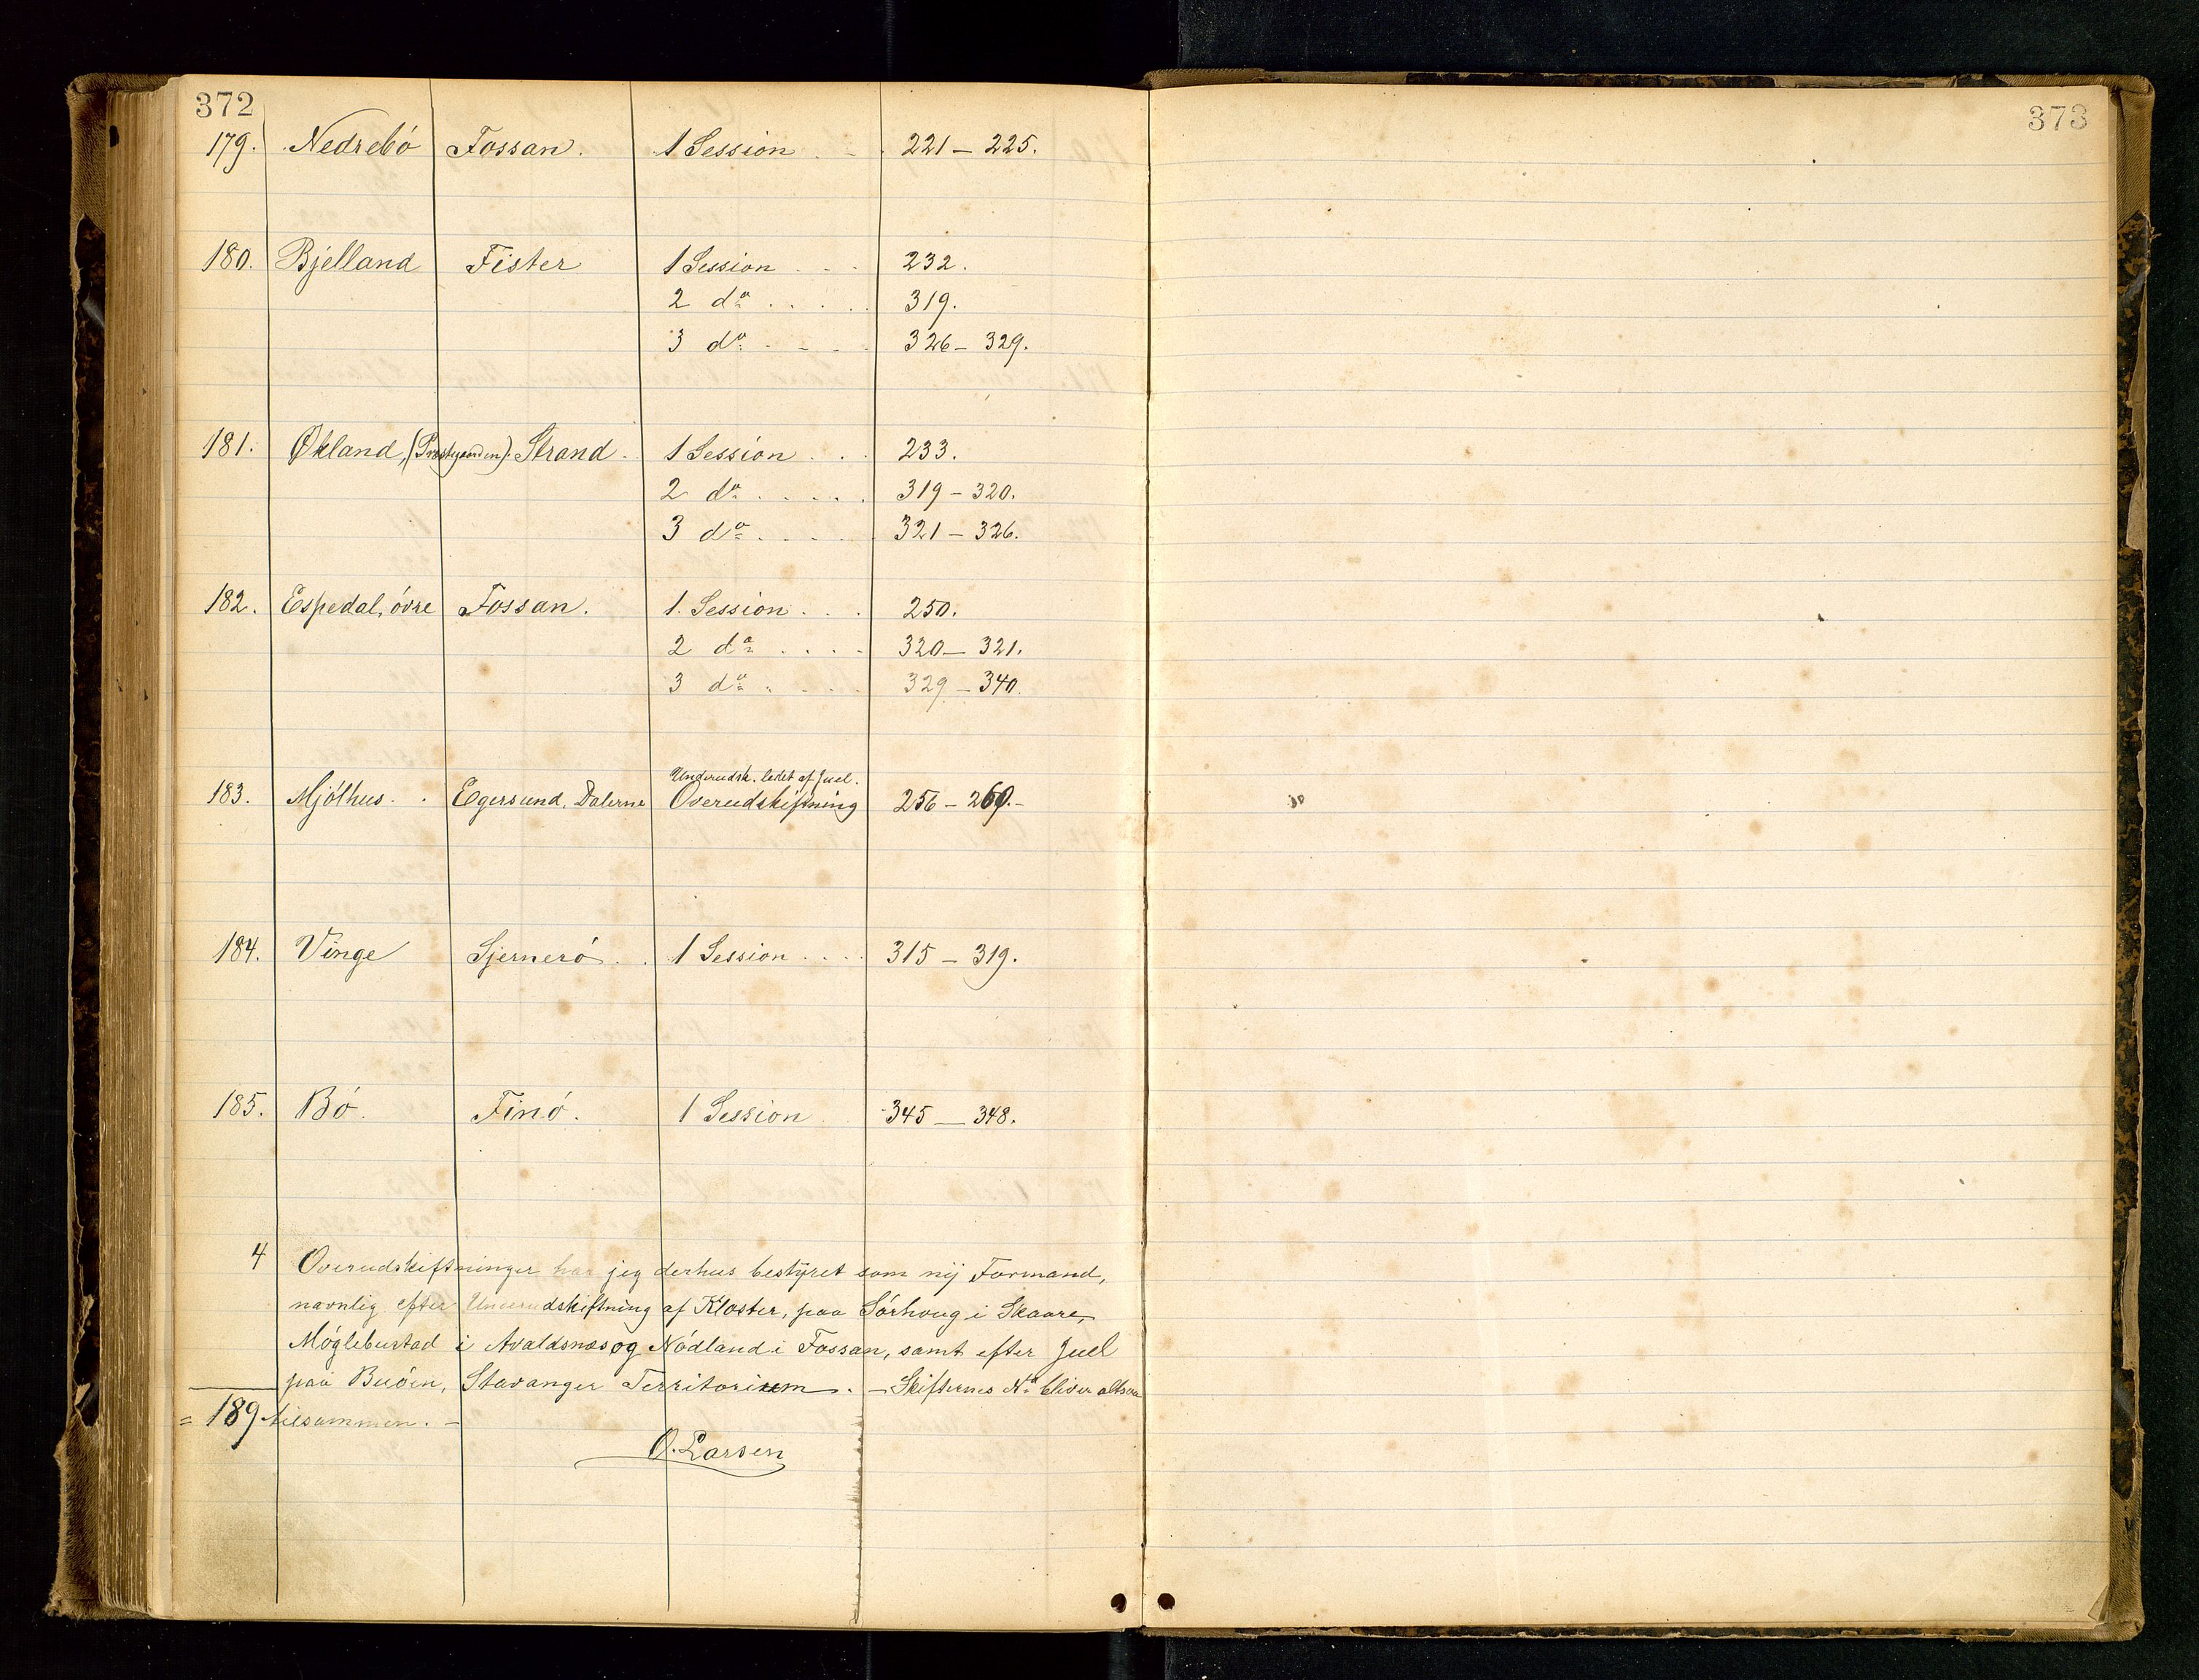 372
179. Nedrebó Fossan. 1 Session . - . 221 - 225.
180. Bjelland Fister 1 Session . . . 232.
2 do . . . . 319.
3 do . - - . 326 - 329.
181. Økland, (Prestegaarden). Strand. 1 Session . . . 233.
2 do . . . . . 319 - 320.
3 do . . . . 321 - 326.
182. Espedal, óvre Fossan. 1. Session . . . 250.
2 do . . . . 320 - 321.
3 do . . . . 329 - 340.
Underudsk. ledet af Juel.
183. Mjólhus. . Egersund, Dalerne Overudskiftning 256 - 260.-
184. Vinge Sjerneró . . 1 Session . . . . 315 - 319.
185. Bó. Finó. 1 Session 345 - 348.
4 Overudskiftninger har jeg derhus bestÿret som nÿ Formand,
navnlig efter Underudskiftning af Kloster, paa Sórhoug i Skaare,
Móglebustad i Avaldsnæs og Nódland i Fossan, samt efter Juel
paa Buóen, Stavanger Territorium. - Skifternes No bliver altsaa
= 189 tilsammen. -
O. Larsen
373